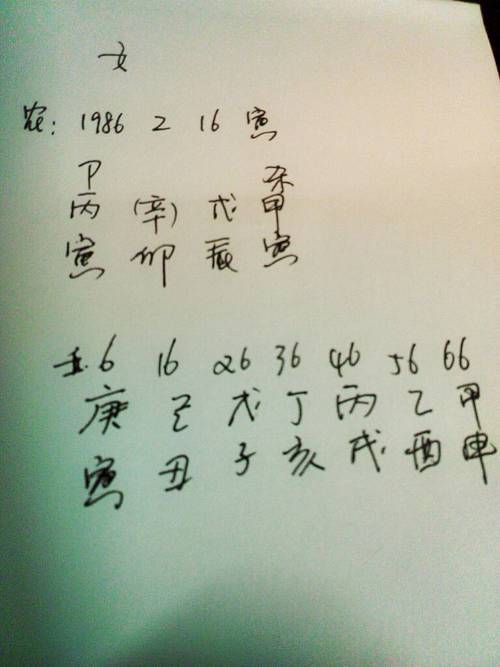 女
农: 1986 2 16 寅
卩 杀
丙 (辛) 戊 甲
寅 卯 辰 寅
6 16 26 36 46 56 66
庚 己 戊 丁 丙 乙 甲
寅 丑 子 亥 戌 酉 申